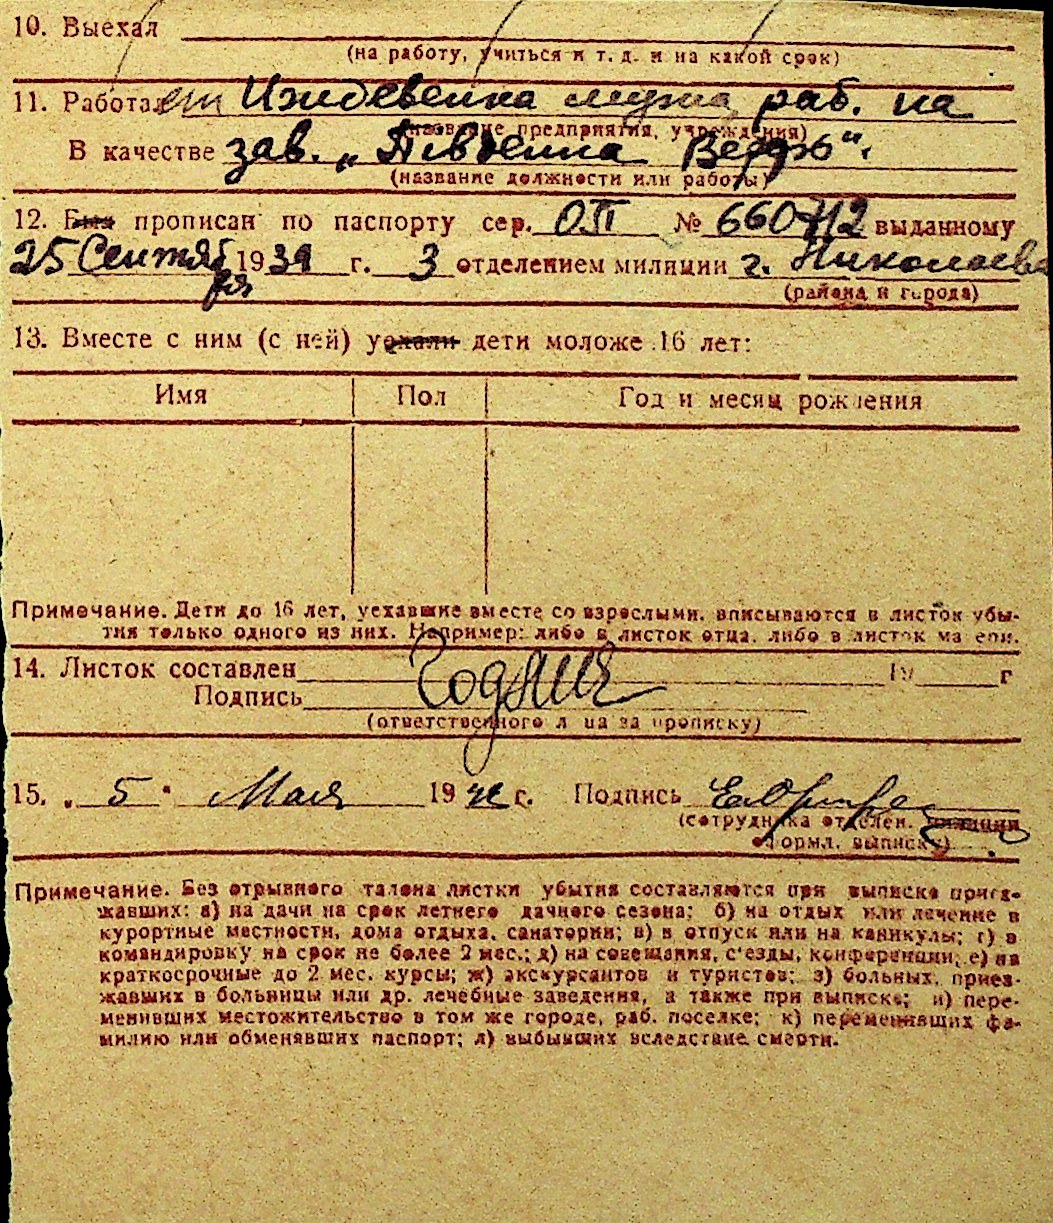 10. Выехал
(на работу, учиться и т. д. и на какой срок)
11. Работает Иждевенка мужа раб. на
(название предприятия, учреждения)
В качестве зав. „Пивденна Верфь".
(название должности или работы)
12. Был прописан по паспорту сер. ОП № 660712 выданному
25 Сентяб 1939 г. 3 отделением милиции г. Николаева
ря
(района и города)
13. Вместе с ним (с ней) уехали дети моложе 16 лет:
Имя Пол Год и месяц рождения
Примечание. Дети до 16 лет, уехавшие вместе со взрослыми, вписываются в листок убы-
тия только одного из них. Например: либо в листок отца, либо в листок матери.
14. Листок составлен 19 г
Подпись
(ответственного лица за прописку)
15. „ 5 " Мая 19 г. Подпись
(сотрудника отделен. милиции
оформл. выписку)
Примечание. Без отрывного талона листки убытия составляются при выписке приез-
жавших: а) на дачи на срок летнего дачного сезона; б) на отдых или лечение в
курортные местности, дома отдыха, санатории; в) в отпуск или на каникулы; г) в
командировку на срок не более 2 мес.; д) на совещания, с'езды, конференции; е) на
краткосрочные до 2 мес. курсы; ж) экскурсантов и туристов; з) больных, приез-
жавших в больницы или др. лечебные заведения, а также при выписке; и) пере-
менивших местожительство в том же городе, раб. поселке; к) переменивших фа-
милию или обменявших паспорт; л) выбывших вследствие смерти.